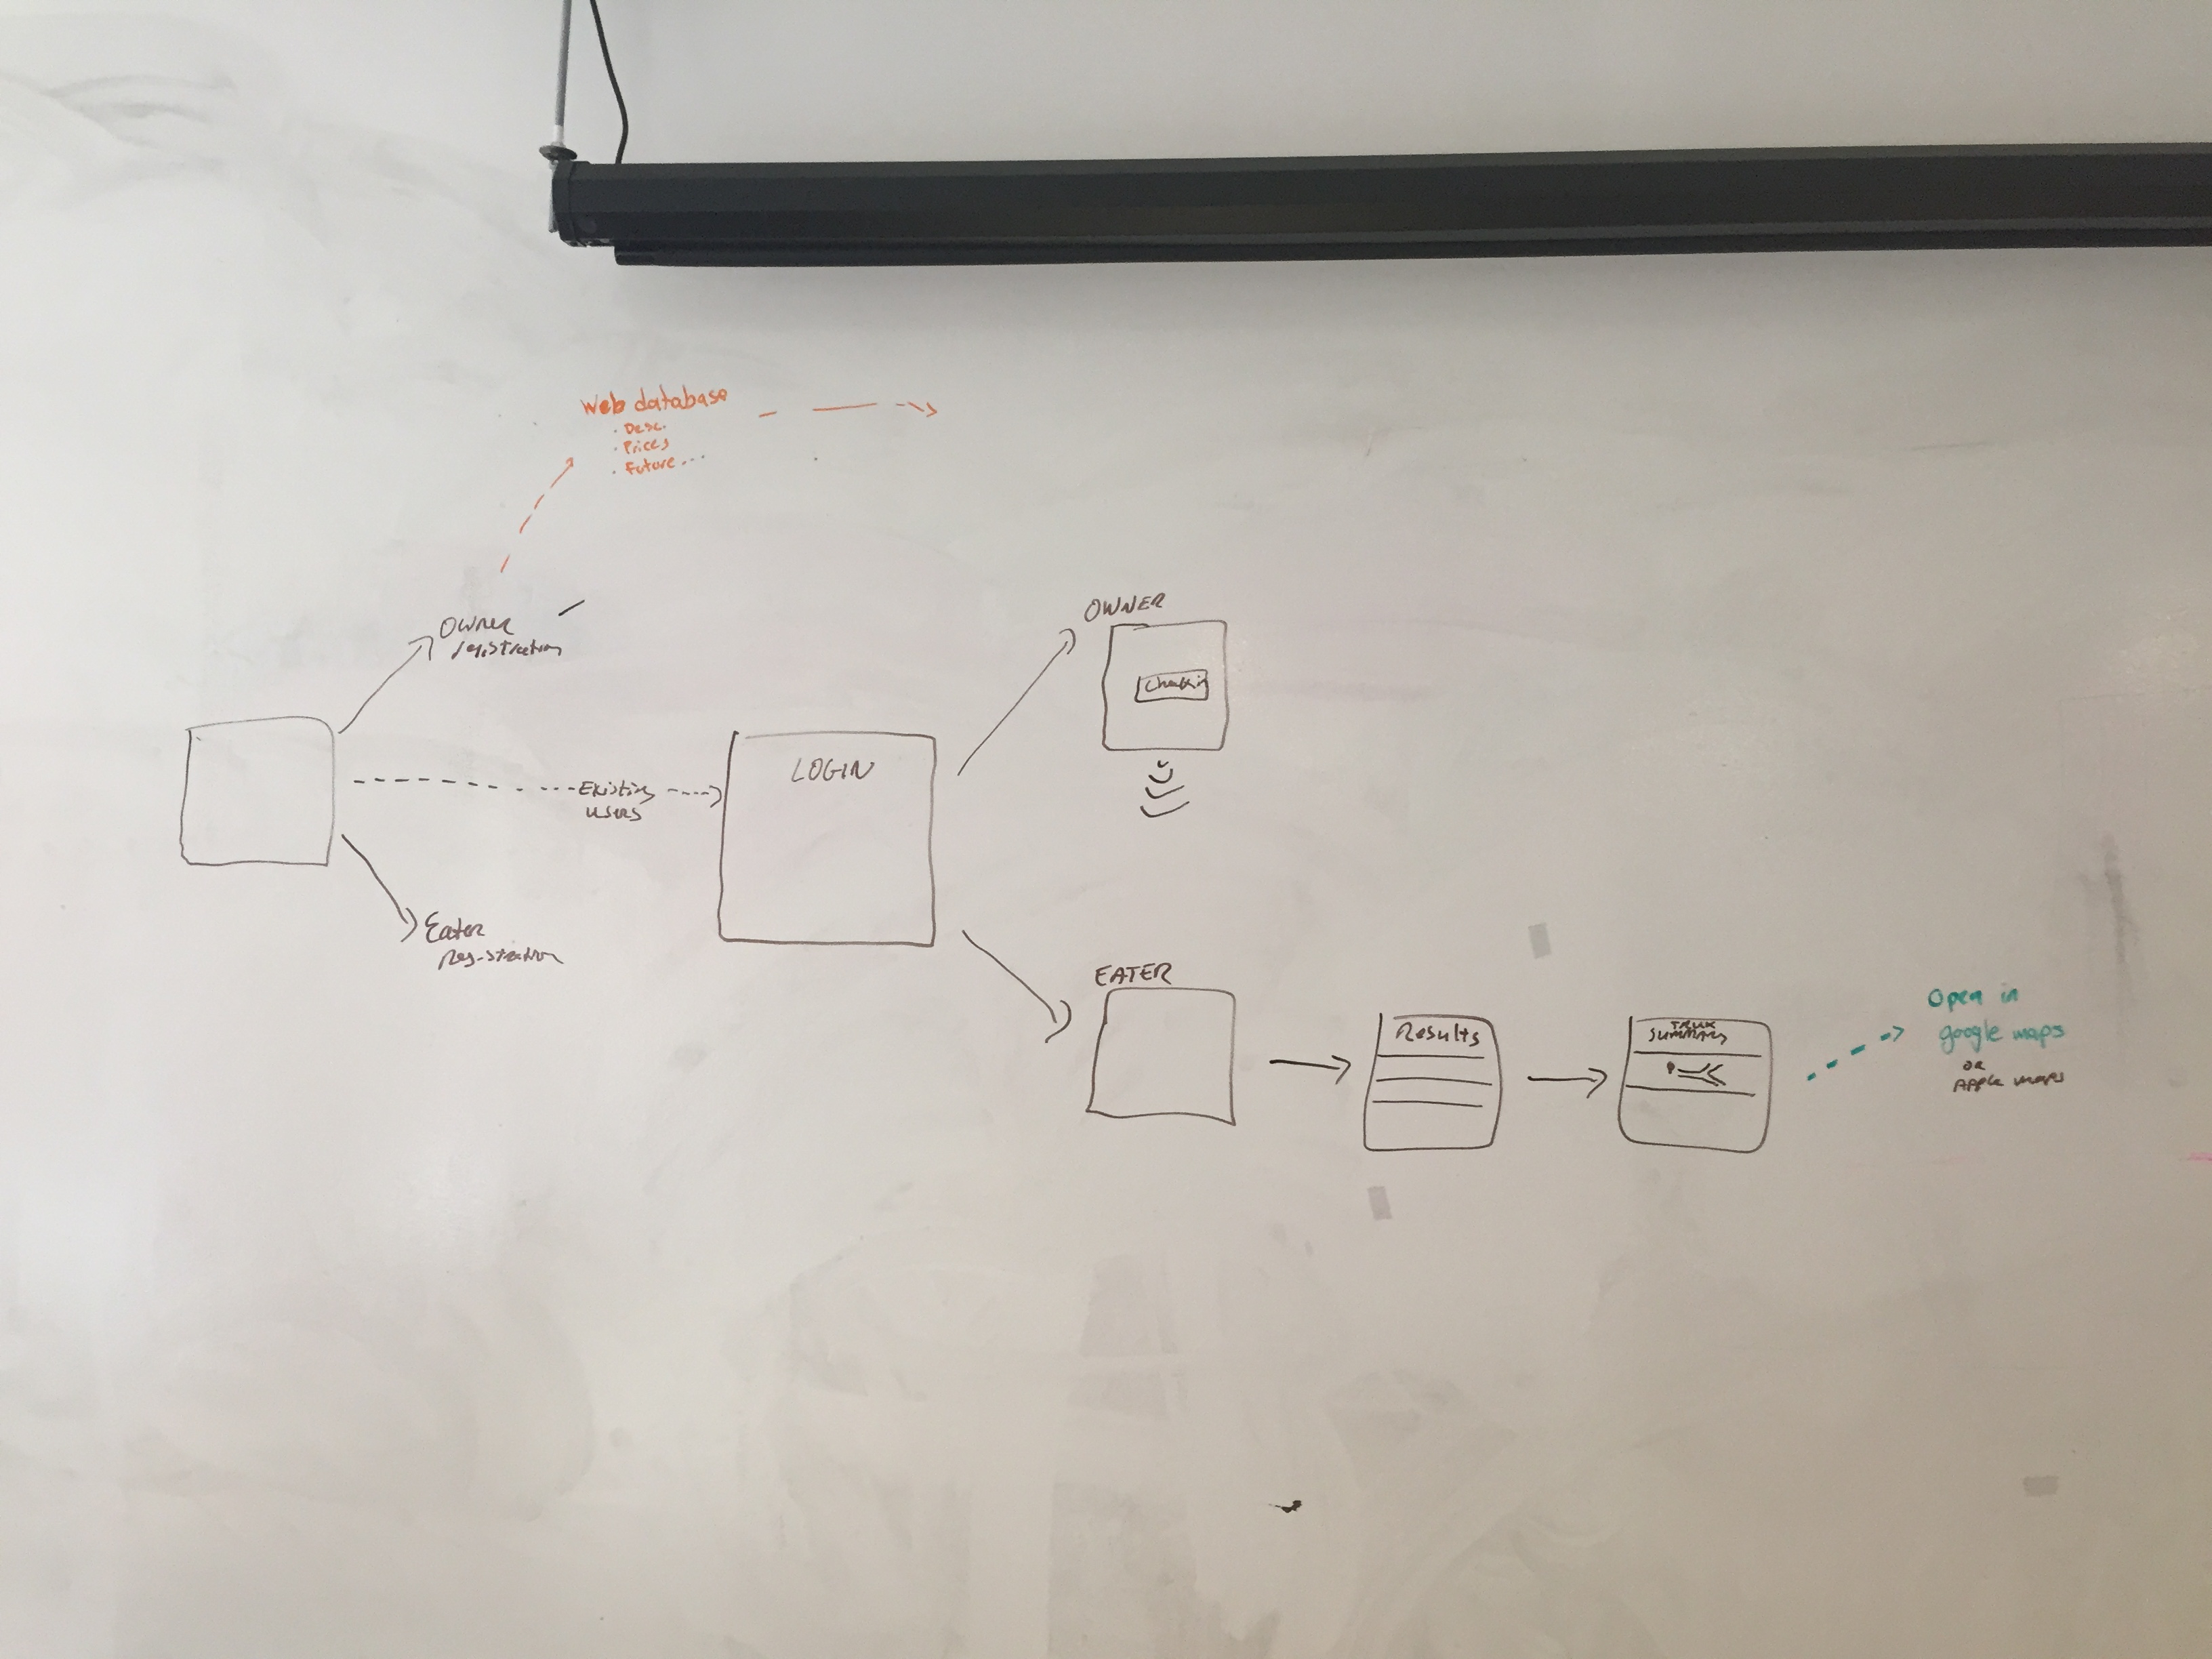 Web database
· Desc.
· Prices
· Future...
Owner
registration
Existing
users
Eater
Registration
LOGIN
OWNER
Checkin
EATER
Results
TRUCK
SUMMARY
Open in
google maps
OR
APPLE maps